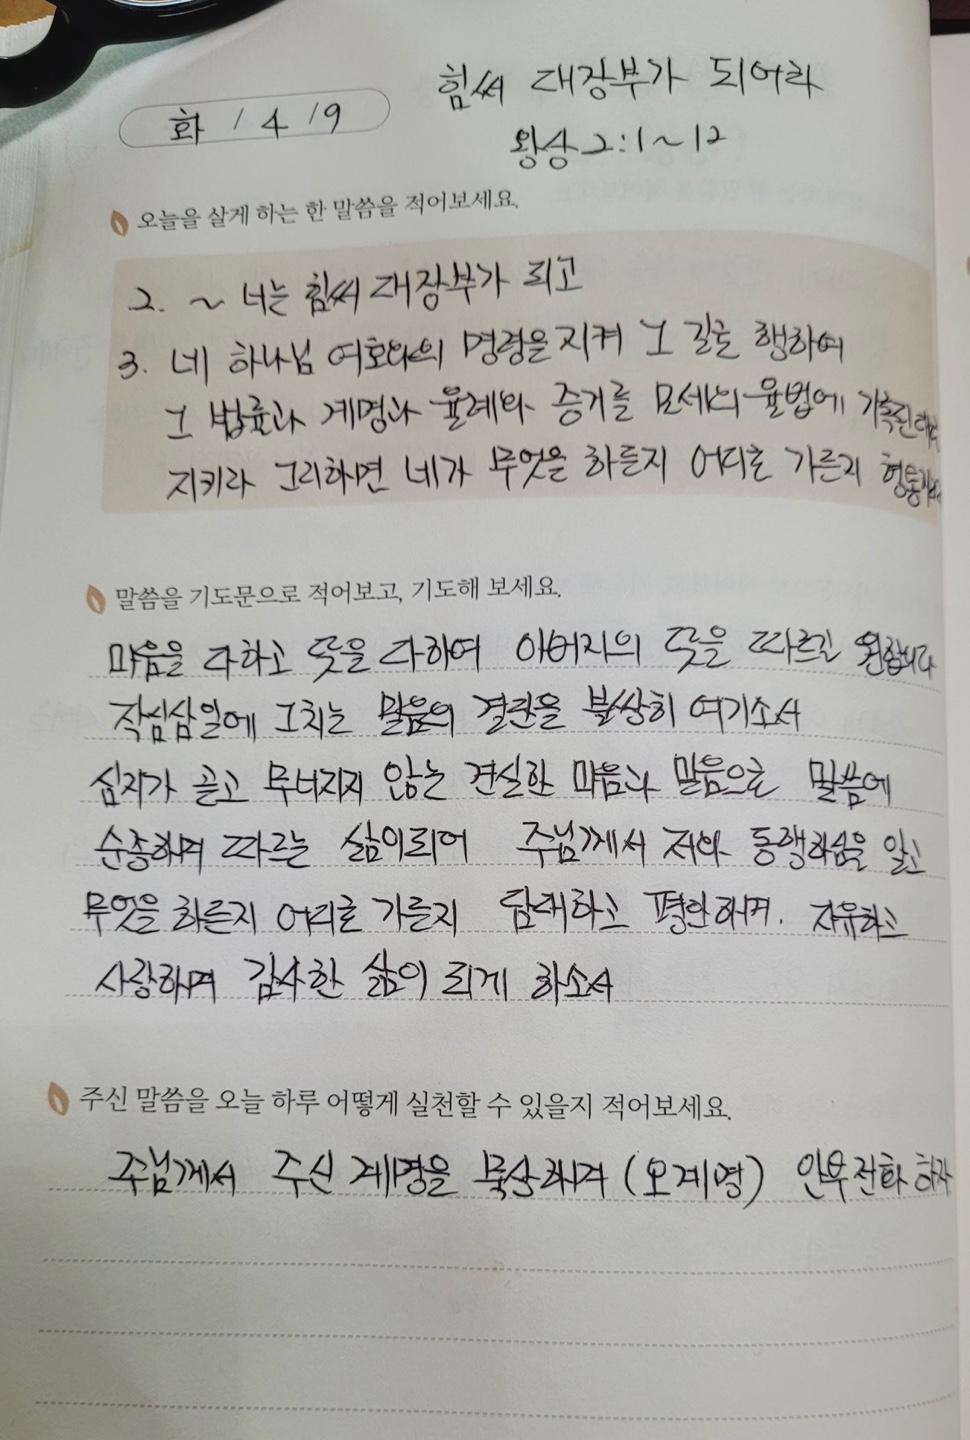 힘써 대장부가 되어라
화 / 4 / 9
왕상 2:1~12
오늘을 살게 하는 한 말씀을 적어보세요.
2. ~ 너는 힘써 대장부가 되고
3. 네 하나님 여호와의 명령을 지켜 그 길로 행하여
그 법률과 계명과 율례와 증거를 모세의 율법에 기록된대로
지키라 그리하면 네가 무엇을 하든지 어디로 가든지
말씀을 기도문으로 적어보고, 기도해 보세요.
마음을 다하고 뜻을 다하여 아버지의 뜻을 따르길 원합니다
작심삼일에 그치는 믿음의 결단을 불쌍히 여기소서
심지가 곧고 무너지지 않는 견실한 마음과 믿음으로 말씀에
순종하며 따르는 삶이되어 주님께서 저와 동행하심을 알고
무엇을 하든지 어디로 가든지 담대하고 평안하며. 자유하고
사랑하며 감사한 삶이 되게 하소서
주신 말씀을 오늘 하루 어떻게 실천할 수 있을지 적어보세요.
주님께서 주신 계명을 묵상하며 (오계명) 안부전화 하자